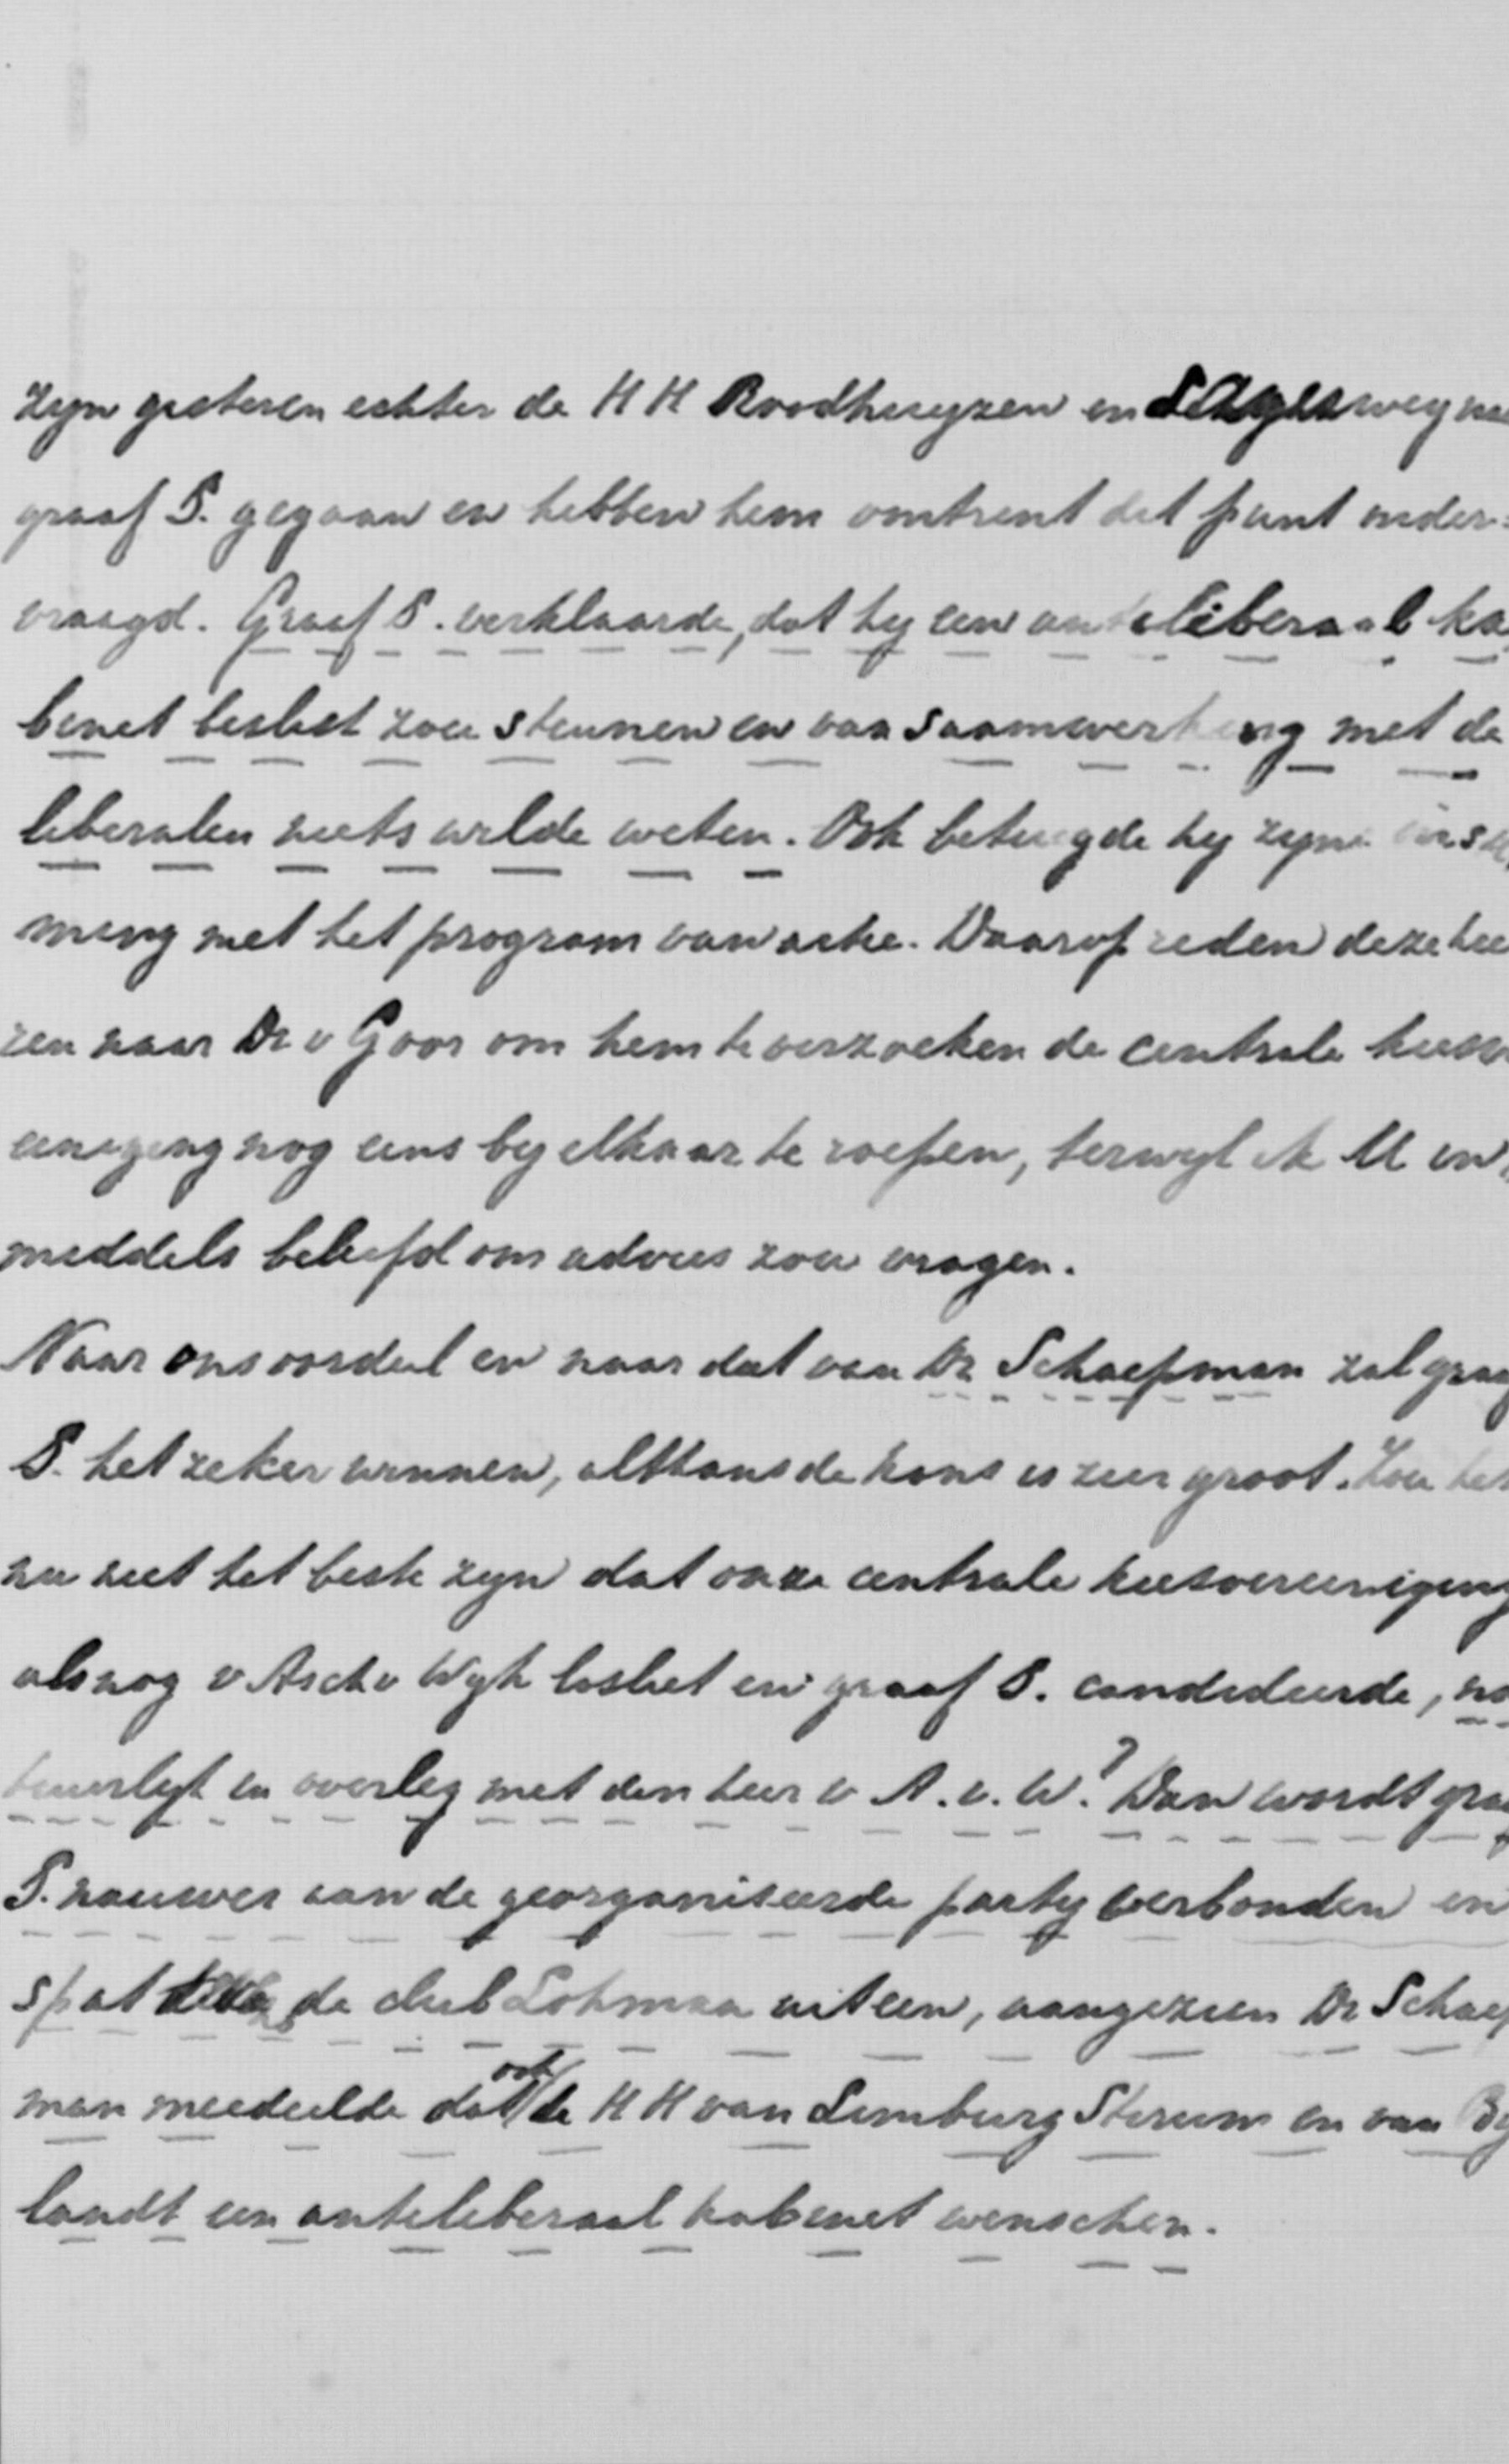 zyn gisteren echter de HH Roodhuyzen en Lagerwey na
graaf S. gegaan en hebben hem omtrent dit punt onder=
vraagd. Graaf S. verklaarde, dat hy een antiliberaal ka
binet beslist zou steunen en van saamwerking met de
liberalen niets wilde weten. Ook betuigde hy zyne inste
ming met het program van actie. Daarop reden deze hee
ren naar Dr v Goor om hem te verzoeken de centrale kiesv
eeniging nog eens by elkaar te roepen, terwyl ik U in
middels beleefd om advies zou vragen.
Naar ons oordeel en naar dat van Dr Schaepman zal graa
S. het zeker winnen, althans de kans is zeer groot. Zou het
nu niet het beste zyn dat onze centrale kiesvereeniging
alsnog v Asch v Wyk losliet en graaf S. candideerde, na
tuurlyk in overleg met den heer v A. v. W.? Dan wordt graa
S. nauwer aan de georganiseerde party verbonden en
spat de club Lohman uiteen, aangezien Dr Schaep
man meedeelde dat ook de HH van Limburg Stirum en van By
landt een antiliberaal kabinet wenschen.